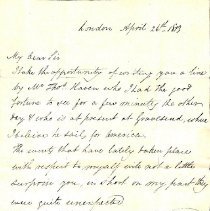 London April 26th
My dear Sir
I take the opportunity of writing you a line
by Mr Thos. who, I had the good
fortune to see for a few minutes the other
day & who is at present at Gravesend, where
I believe he sails for America.
The events that have lately taken place
with respect to myself will not a little
surprise you, in short on my part they
were quite unexpected